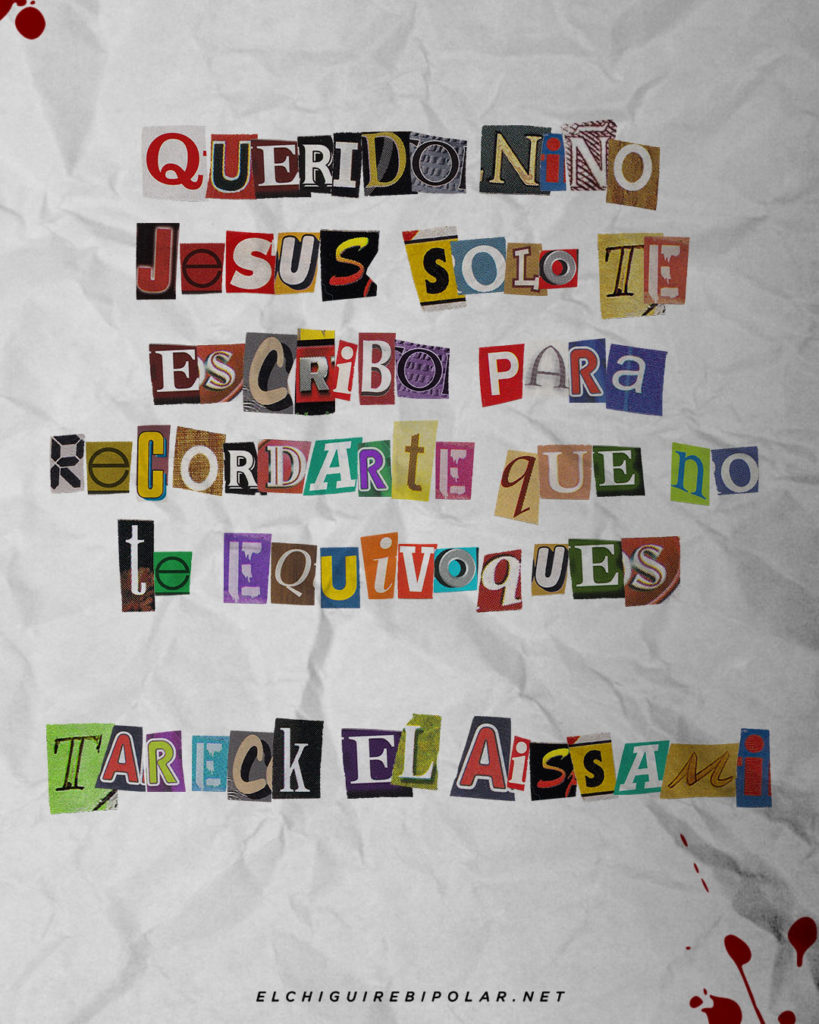 QUERIDO NIÑO
JeSUS SOLO TE
ESCRiBO PARa
ReCORDARTE que no
te EQUiVoqUES
TARECK EL AiSSAMi
ELCHIGUIREBIPOLAR.NET